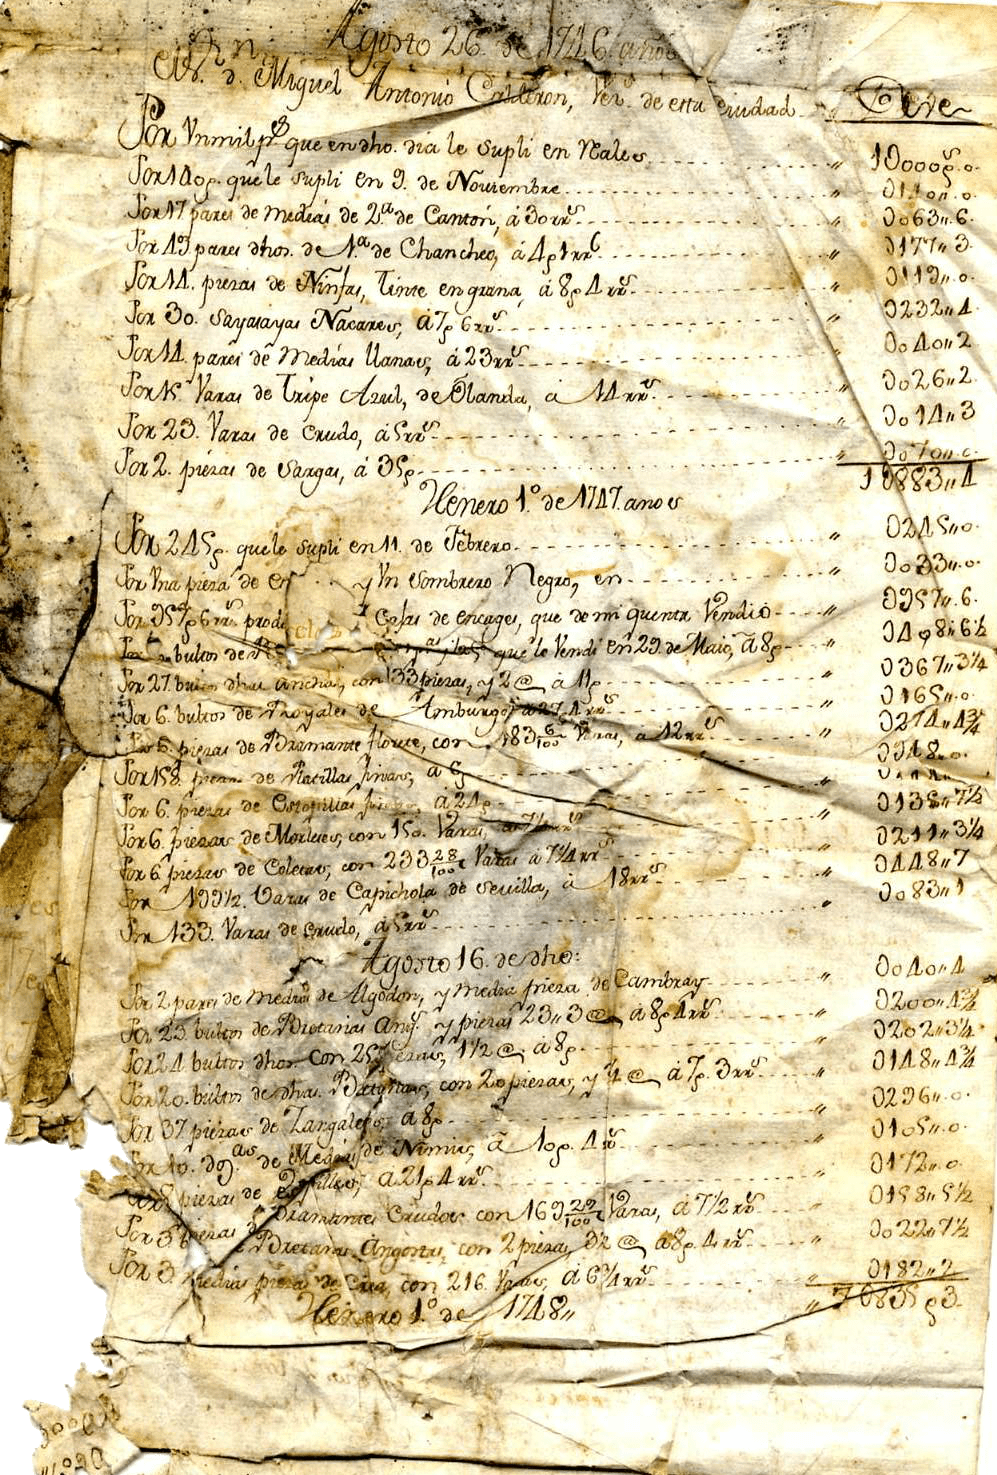 Agosto 26. de 1746. años
D. Miguel Antonio Calderon, Vez.º de esta ciudad Deve
Por Vn mil p.s que en dho. dia le Supli en Reales 1000 p. 0.
Por 140 p. que le Supli en 9. de Noviembre 0140,, 0.
Por 17 pares de medias de 2.a de Canton, á 30 rr.s 0063,, 6.
Por 43 pares dhos. de 1.a de Chancheo, á 4 p 1 rr.l 0177,, 3.
Por 14. piezas de Ninfas, Tinte en grana, á 8 p 4 rr.s 0119,, 0.
Por 30. Sayasayas Nacares, á 7 p 6 rr.s 0232,, 4.
Por 14. pares de medias llanas, á 23 rr.s 0040,, 2
Por 15 Varas de Tripe Azul, de Olanda, á 14 rr.s 0026,, 2.
Por 23. Varas de Crudo, á 5 rr.s 0014,, 3
Por 2. piezas de Sargas, á 35 p 0070,, 0.
10883,, 4
Henero 1.º de 1747. anos
Por 245 p. que le Supli en 11. de Febrero 0245,, 0.
Por Vna pieza de y Vn Sombrero Negro, en 0033,, 0.
Por 957 p 6 rr.s Cosas de encages, que de mi quenta Vendió 0957,, 6.
bultos de que le Vendi en 29. de Maio, á 8 p 6 1/2
Por 27. bultos dhas anchas, con 33 piezas, y 2 @ á 11 p 0367,, 3 1/4
Por 6. bultos de Royales de Amburgo, á 27 p 4 rr.s 0165,, 0.
Por 6. piezas de Bramante florete, con 183 6/100 Varas, a 12 rr.s 0274,, 4 3/4
Por 158 piezas de Platillas finas, á 6 0948,, 0.
Por 6. piezas de Estopillas á 24 p
Por 6. piezas de Morleses, con 150. Varas, á 7 1/4 rr.s 0135,, 7 1/2
Por 6 piezas de Coletas, con 233 28/100 Varas á 7 1/4 rr.s 0211,, 3 1/4
Por 199 1/2 Varas de Capichola de Sevilla, á 18 rr.s 0448,, 7
Por 133. Varas de Crudo, á 5 rr.s 0083,, 1
Agosto 16. de dho:
Por 2 pares de medias de Algodon, y media pieza de Cambray 0040,, 4
Por 23. bultos de Bretañas ang.s y piezas 23,, 3 @ á 8 p 4 rr.s 0200,, 4 1/4
Por 24 bultos dhos. con 25 piezas, 1 1/2 @ á 8 p 0202,, 3 1/4
Por 20. bultos de dhas. Bretañas, con 20 piezas, y 1/4 @ á 7 p. 3 rr.s 0148,, 4 3/4
Por 37 piezas de Zangaletes, á 8 p 0296,, 0.
Por 10. dg.as de Medias de Nimis, á 10 p. 4 rr.s 0105,, 0.
Por 8 piezas de á 21 p 4 rr.s 0172,, 0.
Por 3 piezas de Bramantes Crudos con 169 29/100 Varas, á 7 1/2 rr.s 0158,, 5 1/2
Bretañas Angostas, con 2 piezas, 32 @ á 8 p. 4 rr.s 0022,, 7 1/2
Por 3 medias piezas de Crea, con 216. Varas, á 6 3/4 rr.s 0182,, 2
Henero 1.º de 1748,, 7 0835 p 3.